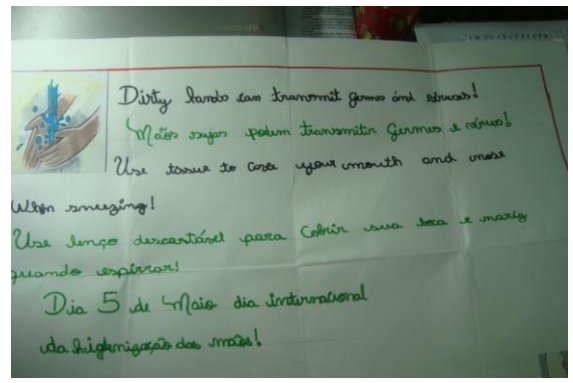 Dirty hands can transmit germs and viruses!
Mãos sujas podem transmitir germes e vírus!
Use tissue to cover your mouth and nose
When sneezing!
Use lenço descartável para Cobrir sua boca e nariz
quando espirrar!
Dia 5 de Maio dia internacional
da higienização das mãos!